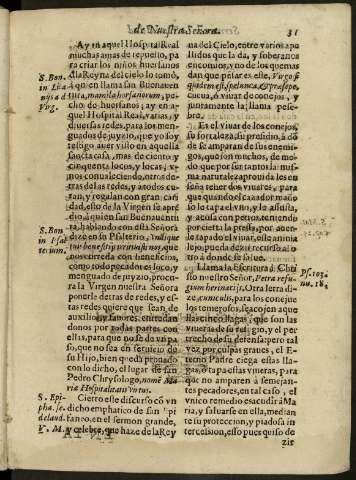 de Nuestra Señora. 31
Ay en aquel Hospital Real
muchas amas de repuesto, pa
ra criar los niños huerfanos
S. Bon.
a la Reyna del cielo lo tomò,
à quien llama san Buenaven
tura,
pecho de huerfanos; ay en a-
quel Hospital Real, varias, y
diversas redes, para los men-
guados de juyzio, que yo soy
testigo aver visto en aquella
santa casa, mas de ciento, y
cinquenta locos, y locas, y
nos convaleciendo, otros de-
tras de las redes, y a todos cu-
ran, y regalan con gran cari-
dad, esto de la Virgen se apré
dio, à quien san Buenaventu
S. Bon.
ra, hablando con esta Señora
dize en su Psalterio,
que
nos
como todo pecador es loco, y
menguado de juyzio, procu-
ra la Virgen nuestra Señora
ponerle detras de redes, y es-
tas redes quiere que sean de
auxilios, y favores, entredan
donos por todas partes con
ellas, para que no se dè vn pas
so, que no sea en servicio de
su Hijo, bien quedò pronado
con lo dicho, el lugar de san
Pedro Chrysologo, nome Ma
ria Hospitalitatis virtus.
S. Epi-
Cierro este discurso con vn
dicho emphatico de san Epi
de laud.
fanco, en el sermon grande,
V. M.
y celebre, que haze de la Rey
na del Cielo, entre varios apo
llidos que la da, y soberanos
encomios, y no de los que mas
dan que pesar es este, Virgo
spelunca, & præsepe,
Cueva, vivar de conejos, y
juntamente la llama pese-
bre.
Es el vivar de los conejos,
su fortaleza, su presidio, à dō
de se amparan de sus enemi-
gos, que son muchos, de mo-
do que por ser tantos la mis-
ma naturaleza provida los en
seña tener dos vivares, para
que quando el cazador maño
so à lo vno los aguarda, y
acosa con perros, teniendo
por cierta la presa, por aver-
le tapado el vivar, este anima
lejo, pueda dezir recurso al o-
tro donde se salva.
Llama la Escritura à Chri-
Ps. 103.
sto nuestro Señor, Petra refu-
nu. 18.
gium herinatijs. Otra letra di
ze, cuniculis, para los conejos
los temerosos, se acojen aque
llas cinco llagas, que son las
viveras de su refugio, y el per
trecho de su defensa, pero tal
vez por culpas graves, el E-
terno Padre ciega estas lla-
gas, o tapa estas viveras, para
que no amparen à semejan-
tes pecadores, en tal caso, el
vnico remedio es acudir à Ma
ria, y salvarse en ella, median
te su proteccion, y piadosa in
tercession, esto pues quiso de
zir